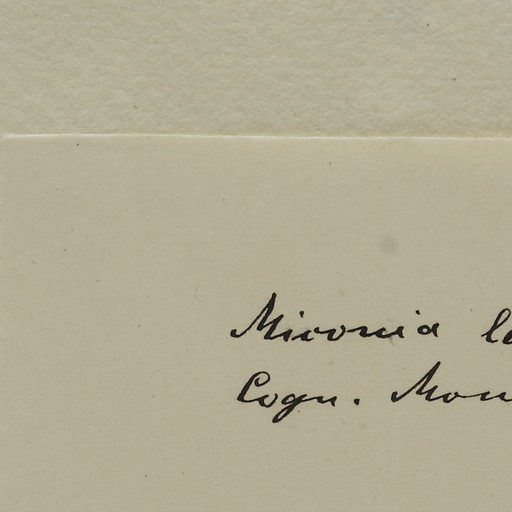 Miconia la
Cogn. Mon